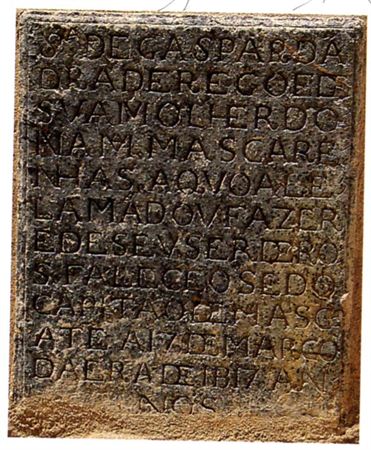 Sª DE GASPAR DA
DRADE REGO E D
SVA MOLHER DO
NA M. MASCARE
NHAS. AQVOAL E
LA MADOV FAZER
E DE SEVS ERDERO
S. FALECEO SEDO
CAPITÃO DE MASC
ATE. A 17 DE MARCO
DA ERA DE 1617 AN
NOS